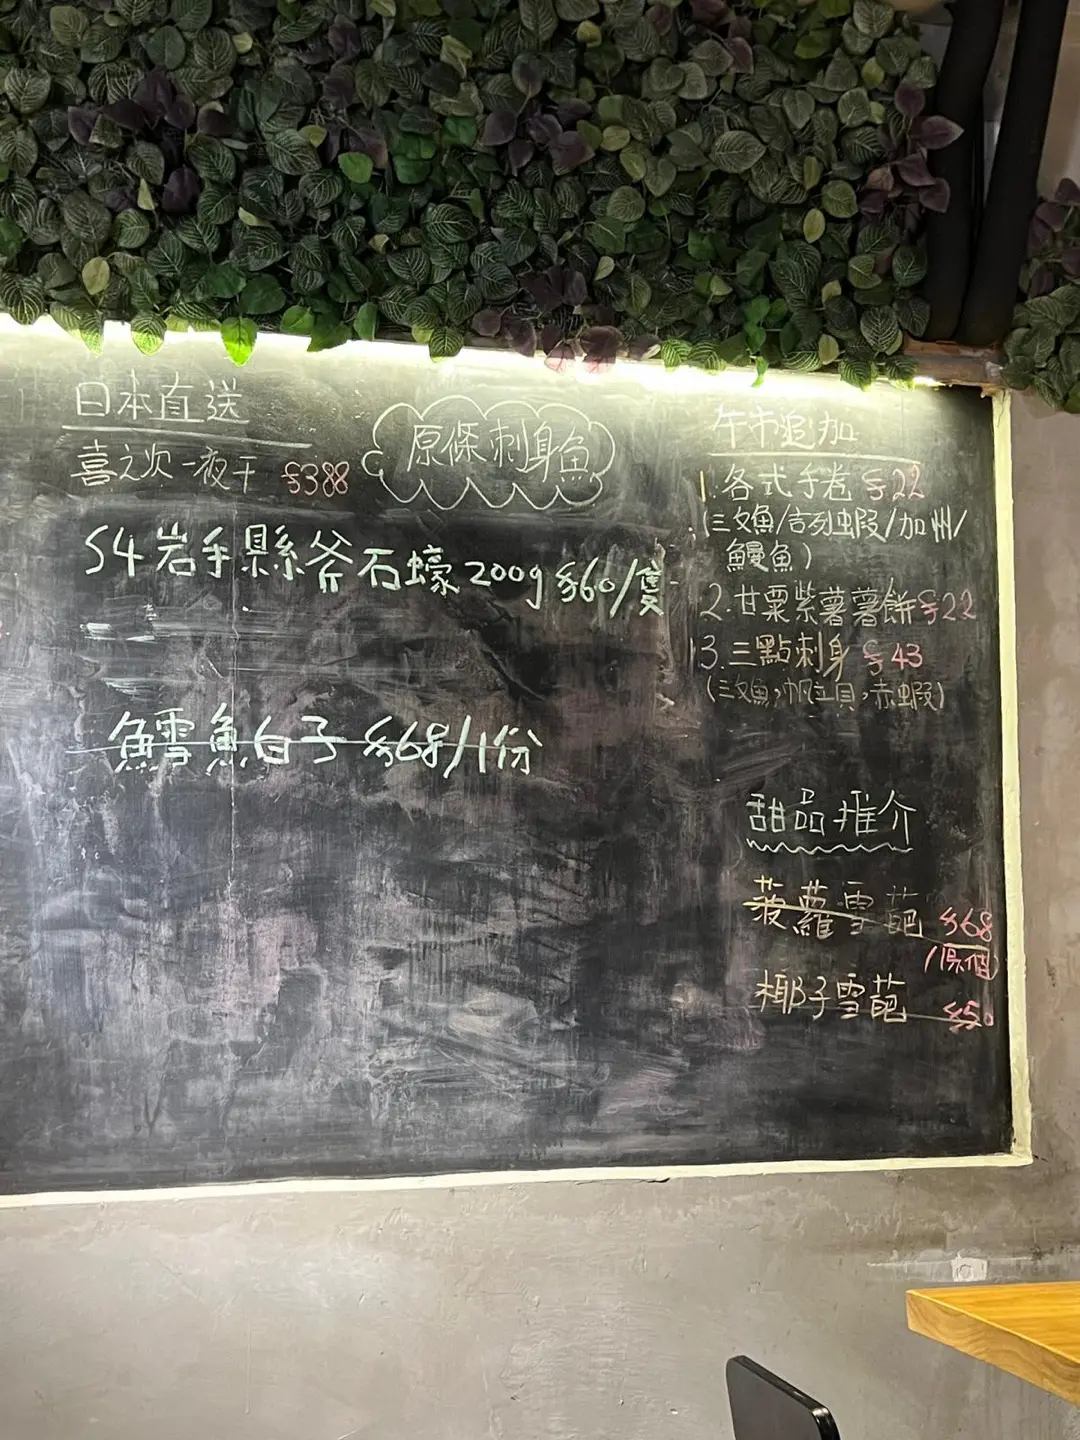 日本直送
喜之次一夜干 $388
原條刺身魚
S4岩手縣斧石蠔200g $60/隻
鱈魚白子 $68/1份
午市追加
1.各式手卷 $22
(三文魚/吉列蝦/加州/
鰻魚)
2.甘栗紫薯薯餅$22
3.三點刺身 $43
(三文魚,帆立貝,赤蝦)
甜品推介
菠蘿雪葩 $68
/原個
椰子雪葩 $50